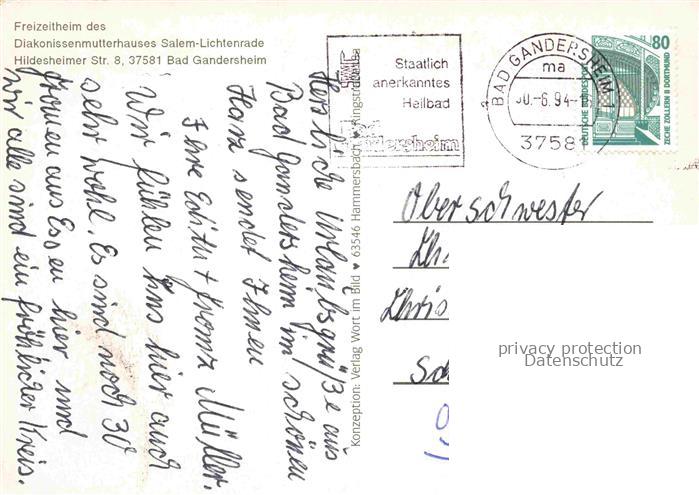 Freizeitheim des
Diakonissenmutterhauses Salem-Lichtenrade
Hildesheimer Str. 8, 37581 Bad Gandersheim
Staatlich
anerkanntes
Heilbad
Bad
Gandersheim
BAD GANDERSHEIM
ma
30.-6.94-
37581
80
DEUTSCHE BUNDESPOST
ZECHE ZOLLERN II DORTMUND
Herzliche Urlaubsgrüße aus
Bad Gandersheim im schönen
Harz sendet Ihnen
Ihre Edith + Franz Müller.
Wir fühlen uns hier auch
sehr wohl. Es sind noch 30
Frauen aus Essen hier und
wir alle sind ein fröhlicher Kreis.
Konzeption: Verlag Wort im Bild ♥ 63546 Hammersbach
Oberschwester
Chris
privacy protection
Datenschutz